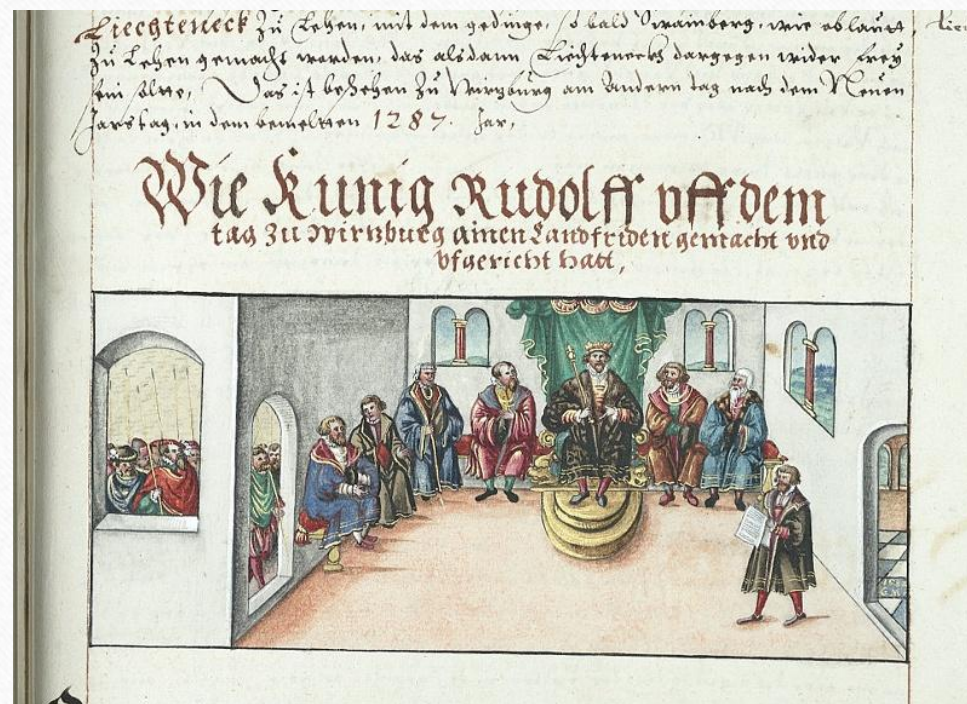 Liechteneck zu Lehen, mit dem gedinge, so bald Swainberg, wie oblautt,
zu Lehen gemacht werden, das alsdann Liechteneck dargegen wider frey
sein solte, Das ist beschehen zu Wirtzburg am andern tag nach dem Neuen
Jars tag, in dem bemelten 1287. Jar,
Wie Kunig Rudolff vff dem
tag zu Wirtzburg ainen Landfriden gemacht vnd
vfgericht hatt,